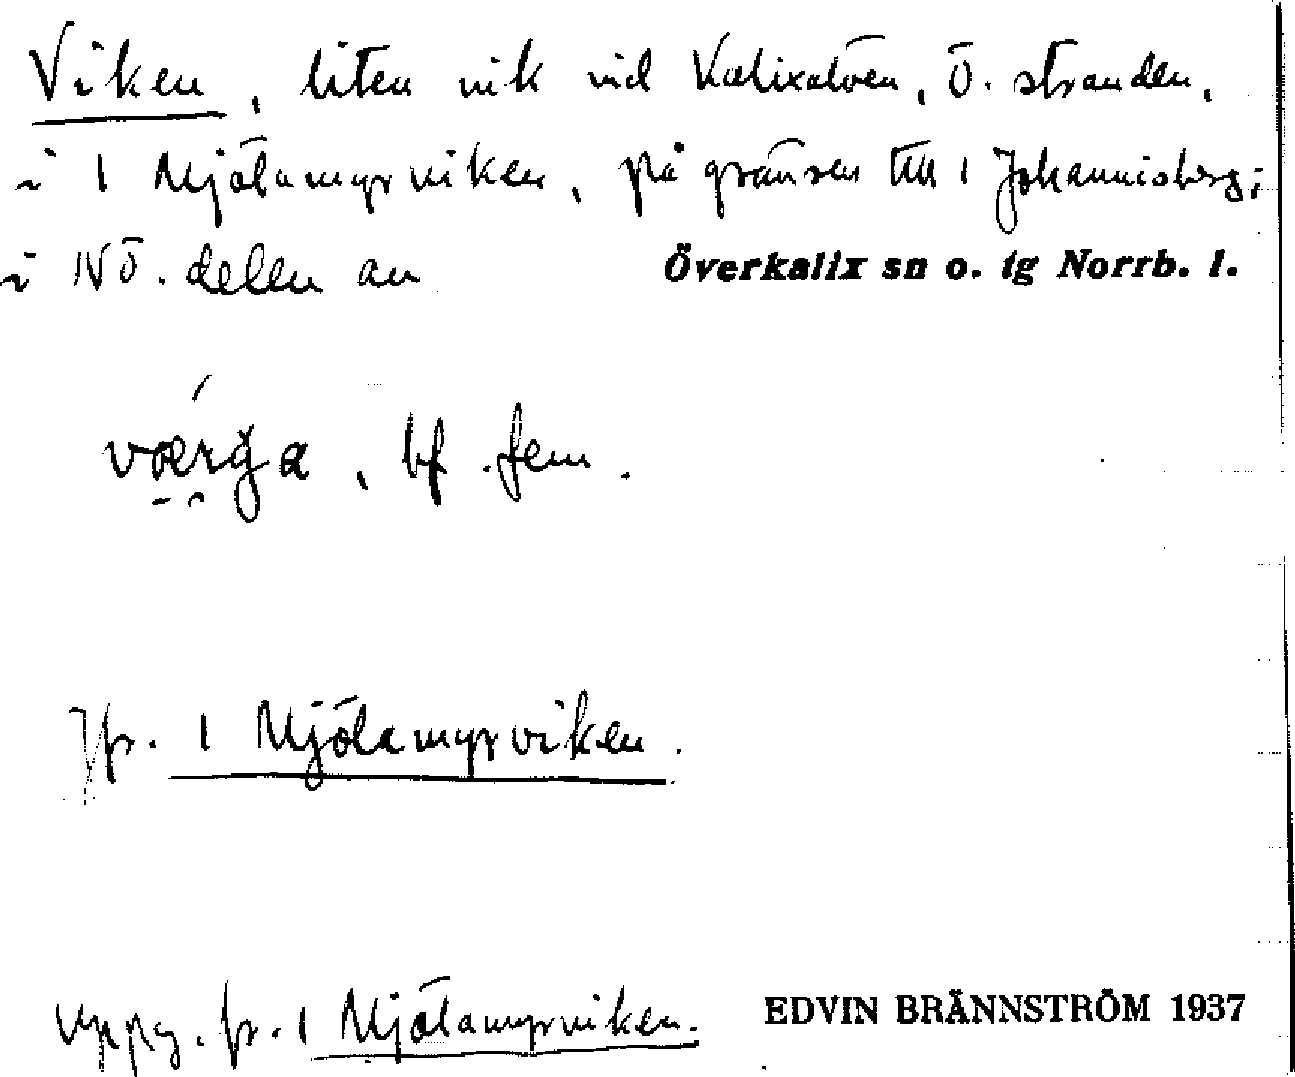 Viken, liten vik vid Kalixälven, ö. stranden,
i 1 Mjölamyrviken, på gränsen till 1 Johannisberg;
i NÖ. delen av Överkalix sn o. tg Norrb. l.
bf. fem.
Jfr. 1 Mjölamyrviken.
Uppg. fr. 1 Mjölamyrviken. EDVIN BRÄNNSTRÖM 1937